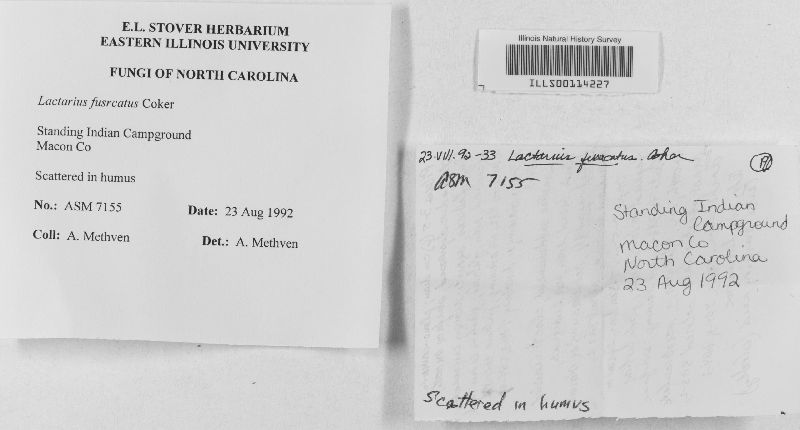 E.L. STOVER HERBARIUM
EASTERN ILLINOIS UNIVERSITY
FUNGI OF NORTH CAROLINA
Lactarius fusrcatus Coker
Standing Indian Campground
Macon Co
Scattered in humus
No.: ASM 7155 Date: 23 Aug 1992
Coll: A. Methven Det.: A. Methven
Illinois Natural History Survey
ILLS00114227
23.VIII.92-33 Lactarius Coker
ASM 7155
Standing Indian
Campground
Macon Co
North Carolina
23 Aug 1992
Scattered in humus